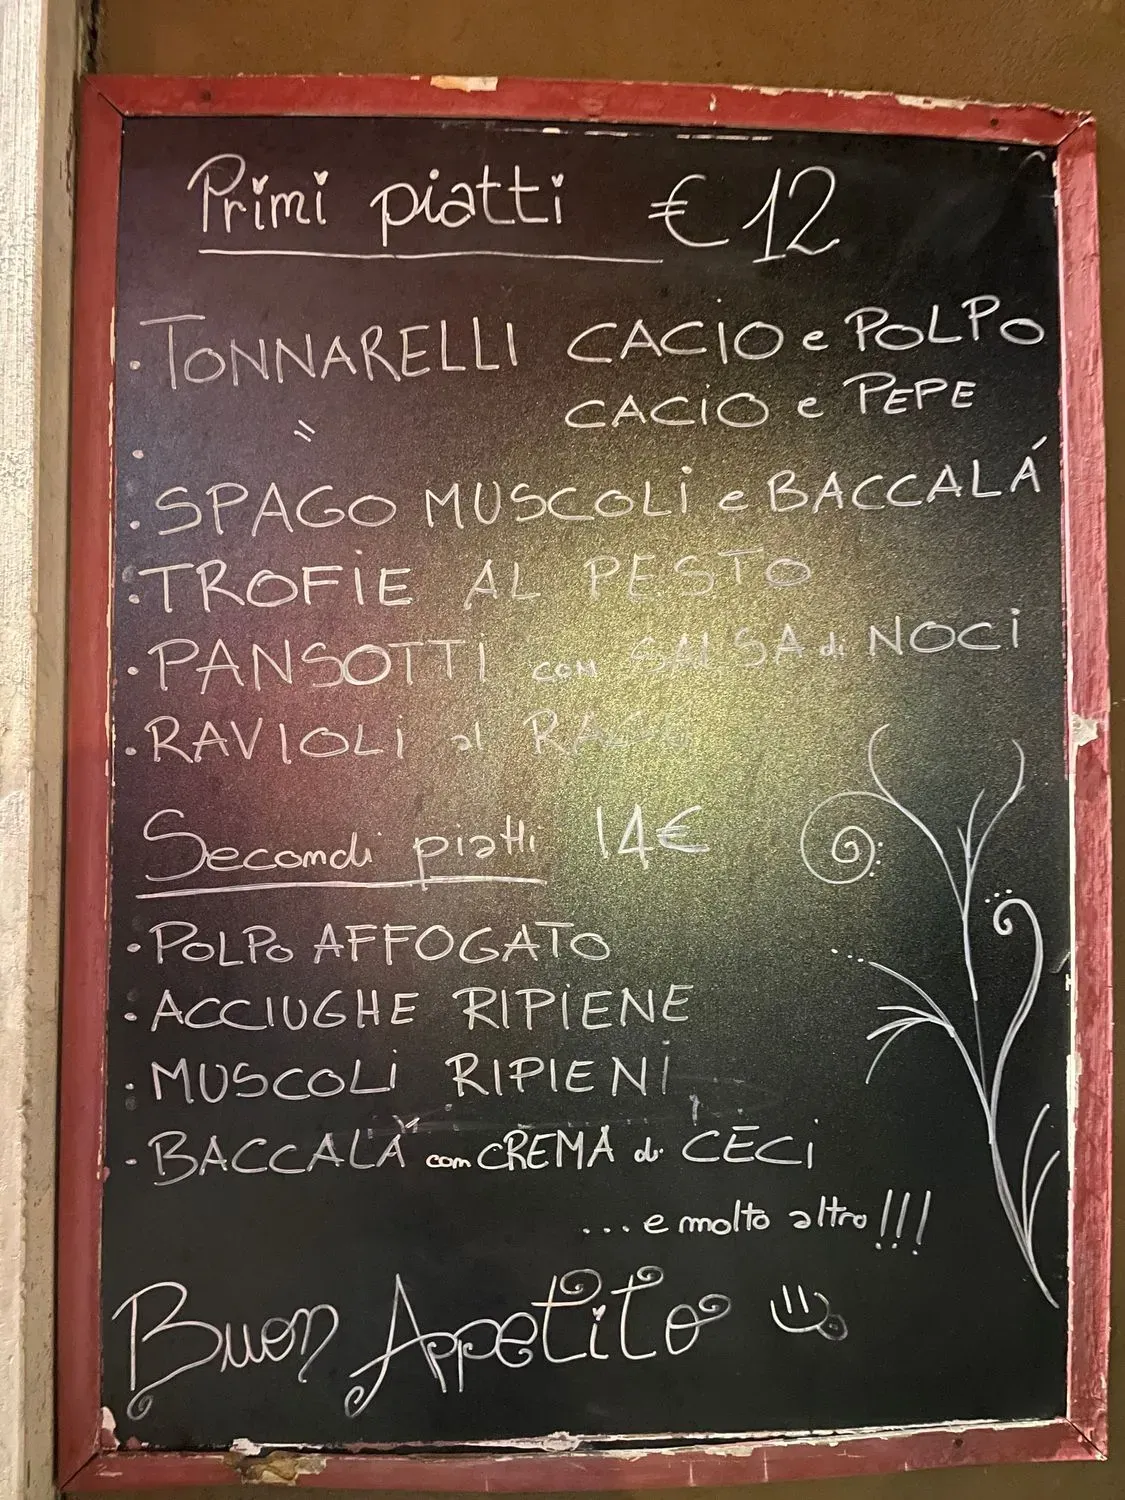 Primi piatti € 12
. TONNARELLI CACIO e POLPO
. " CACIO e PEPE
. SPAGO MUSCOLI e BACCALÁ
: TROFIE AL PESTO
. PANSOTTI con SALSA di NOCI
. RAVIOLI al RAGÙ
Secondi piatti 14€
. POLPO AFFOGATO
. ACCIUGHE RIPIENE
. MUSCOLI RIPIENI
- BACCALÀ con CREMA di CECI
... e molto altro!!!
Buon Appetito